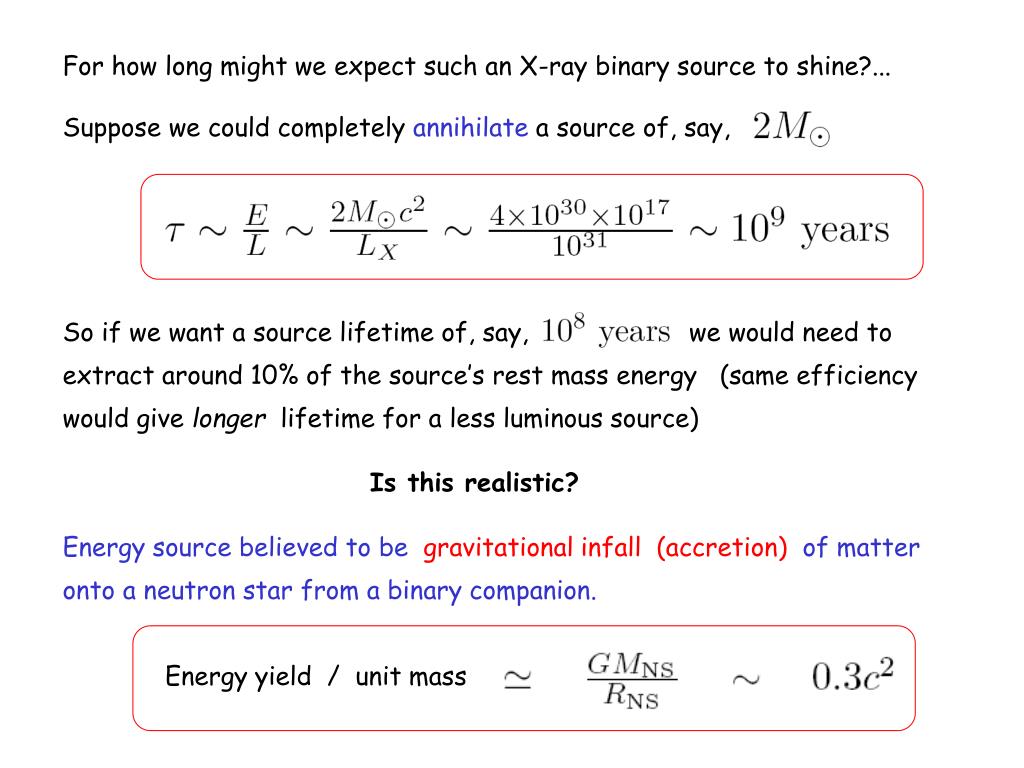 For how long might we expect such an X-ray binary source to shine?...
Suppose we could completely annihilate a source of, say, 2M⊙
τ ∼ E/L ∼ 2M⊙c²/L_X ∼ 4×10³⁰×10¹⁷/10³¹ ∼ 10⁹ years
So if we want a source lifetime of, say, 10⁸ years we would need to
extract around 10% of the source's rest mass energy (same efficiency
would give longer lifetime for a less luminous source)
Is this realistic?
Energy source believed to be gravitational infall (accretion) of matter
onto a neutron star from a binary companion.
Energy yield / unit mass ≃ GM_NS/R_NS ∼ 0.3c²